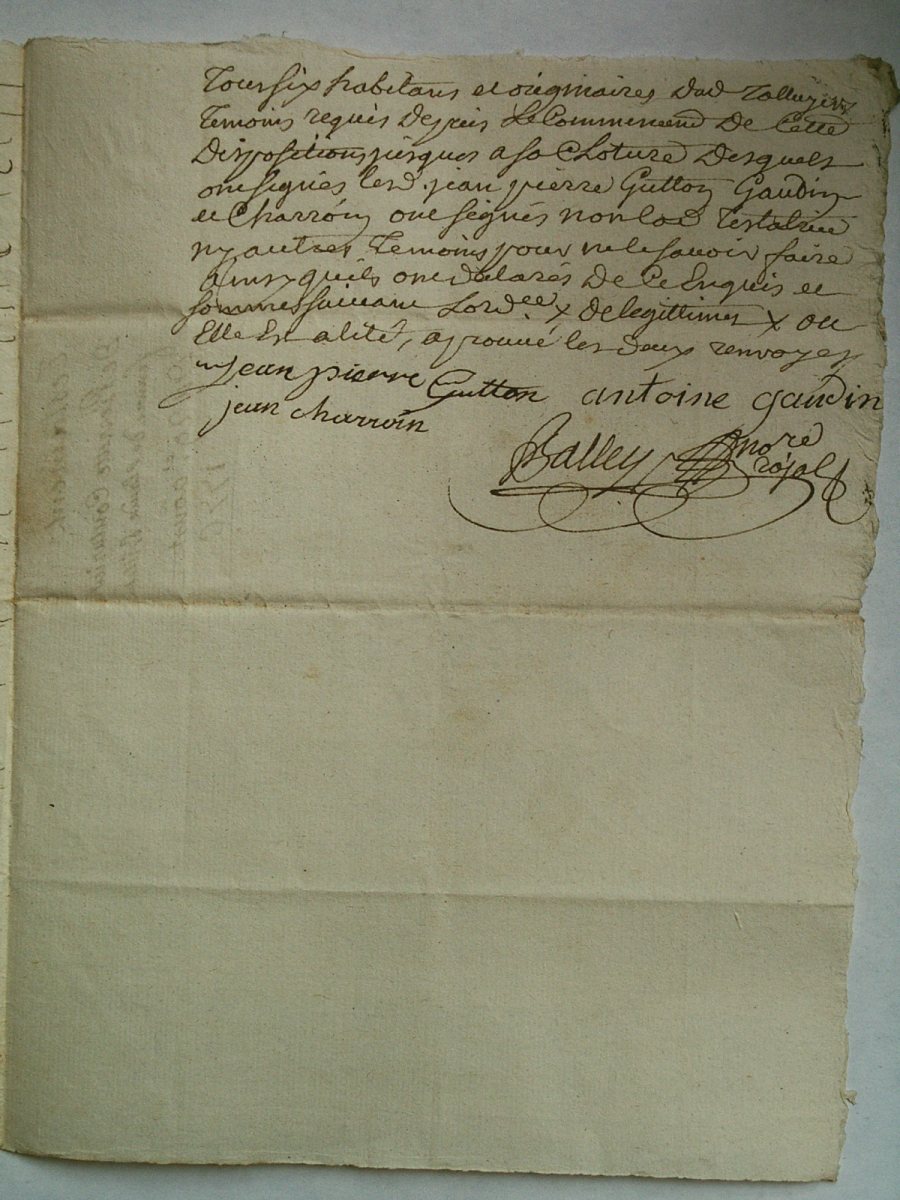 Tous six habitans et originaires dud Talluyers
Temoins requis depuis Le Commencem.t De Cette
Dispositions jusques a sa Cloture Desquels
ont signés lesd. jean pierre Gutton Gaudin
et Charroin ont signés non lad Testatrice
ny autres Temoins pour ne le savoir faire
ainsy quils ont declarés De Ce Enquis et
sommes suivant Lord.ce x de legittimes x ou
Elle Est alité, aprouvé les deux renvoyes
jean pierre Gutton antoine gaudin
jean charroin
Balley no.re
royal